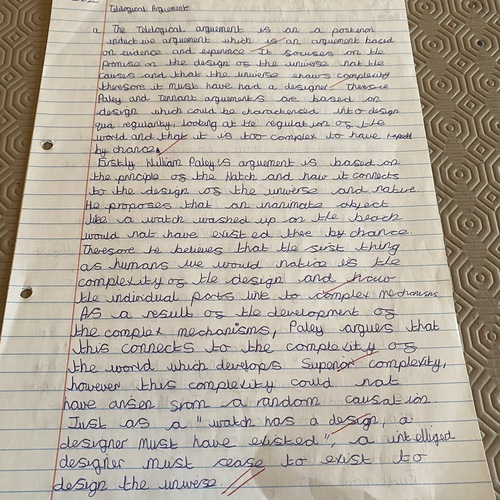 Teleological Argument
a. The Teleological arguement is an a posteriori
inductive arguement which is an arguement based
on evidence and experience. It focuses on the
promise on the design of the universe not the
causes and that the universe shows complexity
therefore it must have had a designer. Therefore
Paley and Tennant arguements are based on
design which could be characterised into design
qua regularity, looking at the regulation of the
world and that it is too complex to have
by chance.
Firstly William Paley's arguement is based on
the principle of the Watch and how it connects
to the design of the universe and nature.
He proposes that an inanimate object
like a watch washed up on the beach
would not have existed there by chance.
Therefore he believes that the first thing
as humans we would notice is the
complexity of the design and how
the individual parts link to complex mechanisms.
As a result of the development of
the complex mechanisms, Paley argues that
this connects to the complexity of
the world which develops superior complexity,
however this complexity could not
have arisen from a random causation.
Just as a "watch has a design, a
designer must have existed", a intelliged
designer must cease to exist to
design the universe